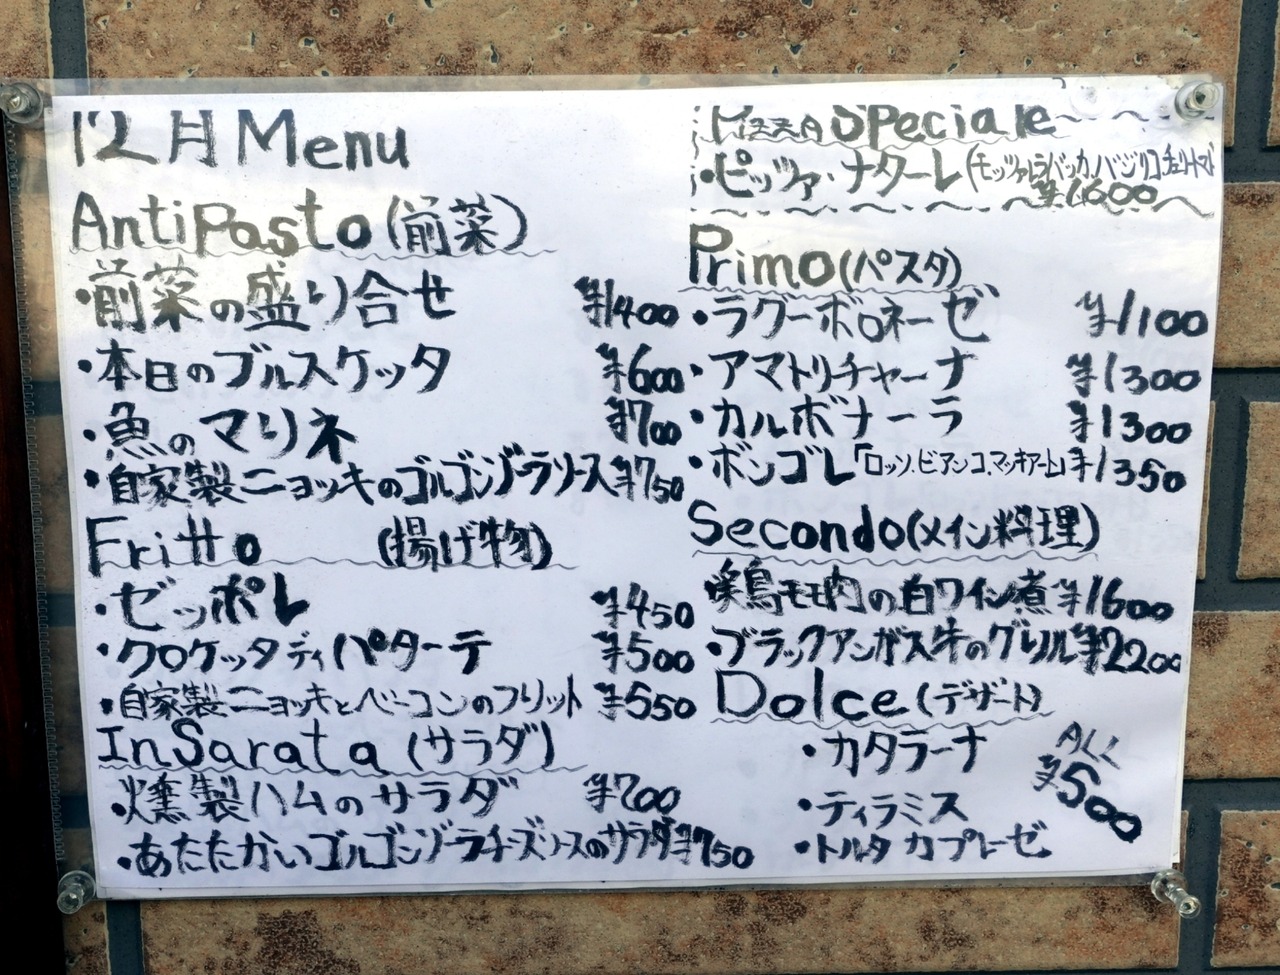 12月Menu
AntiPasto(前菜)
・前菜の盛り合せ ¥1400
・本日のブルスケッタ ¥600
・魚のマリネ ¥700
・自家製ニョッキのゴルゴンゾーラソース ¥750
Fritto (揚げ物)
・ゼッポレ ¥450
・クロケッタディパターテ ¥500
・自家製ニョッキとベーコンのフリット ¥550
InSarata (サラダ)
・燻製ハムのサラダ ¥700
・あたたかいゴルゴンゾーラチーズソースのサラダ ¥750
SPeciale
・ピッツァ・ナターレ(モッツァレラバッカ.バジリコ.チェリートマト
¥1600
Primo(パスタ)
・ラグーボロネーゼ ¥1100
・アマトリチャーナ ¥1300
・カルボナーラ ¥1300
・ボンゴレ「ロッソ.ビアンコ.マッキアート」 ¥1350
Secondo(メイン料理)
鶏モモ肉の白ワイン煮 ¥1600
・ブラックアンガス牛のグリル ¥2200
Dolce (デザート)
・カタラーナ
・ティラミス
・トルタカプレーゼ
ALL
¥500